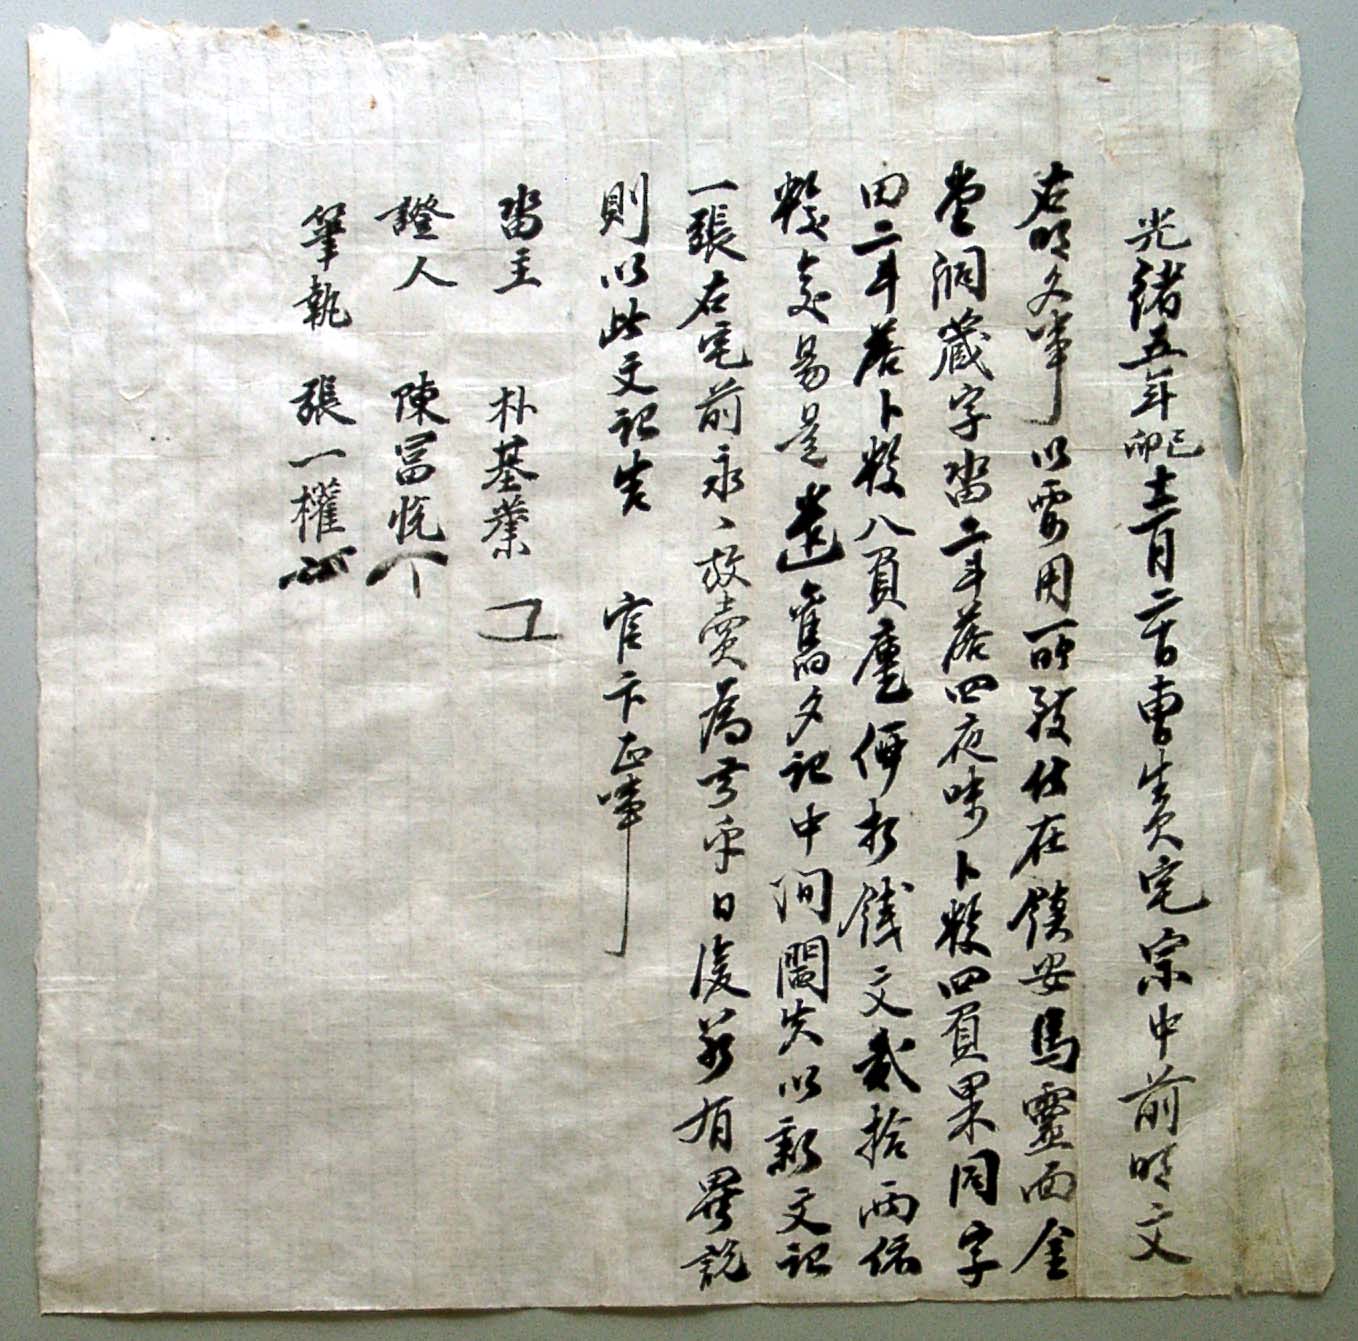 光緒五年己卯十二月二十日曺生員宅宗中前明文
右明文事以要用所致伏在鎭安馬靈面金
堂洞藏字畓二斗落四夜味卜數四負果同字
田二斗落卜數八負庫価折錢文貳拾兩依
數交易是遣舊文記中間閪失以新文記
一張右宅前永〻放賣爲乎乎日後若有異說
則以此文記告 官卞正事
畓主 朴基業
證人 陳富悅
筆執 張一權